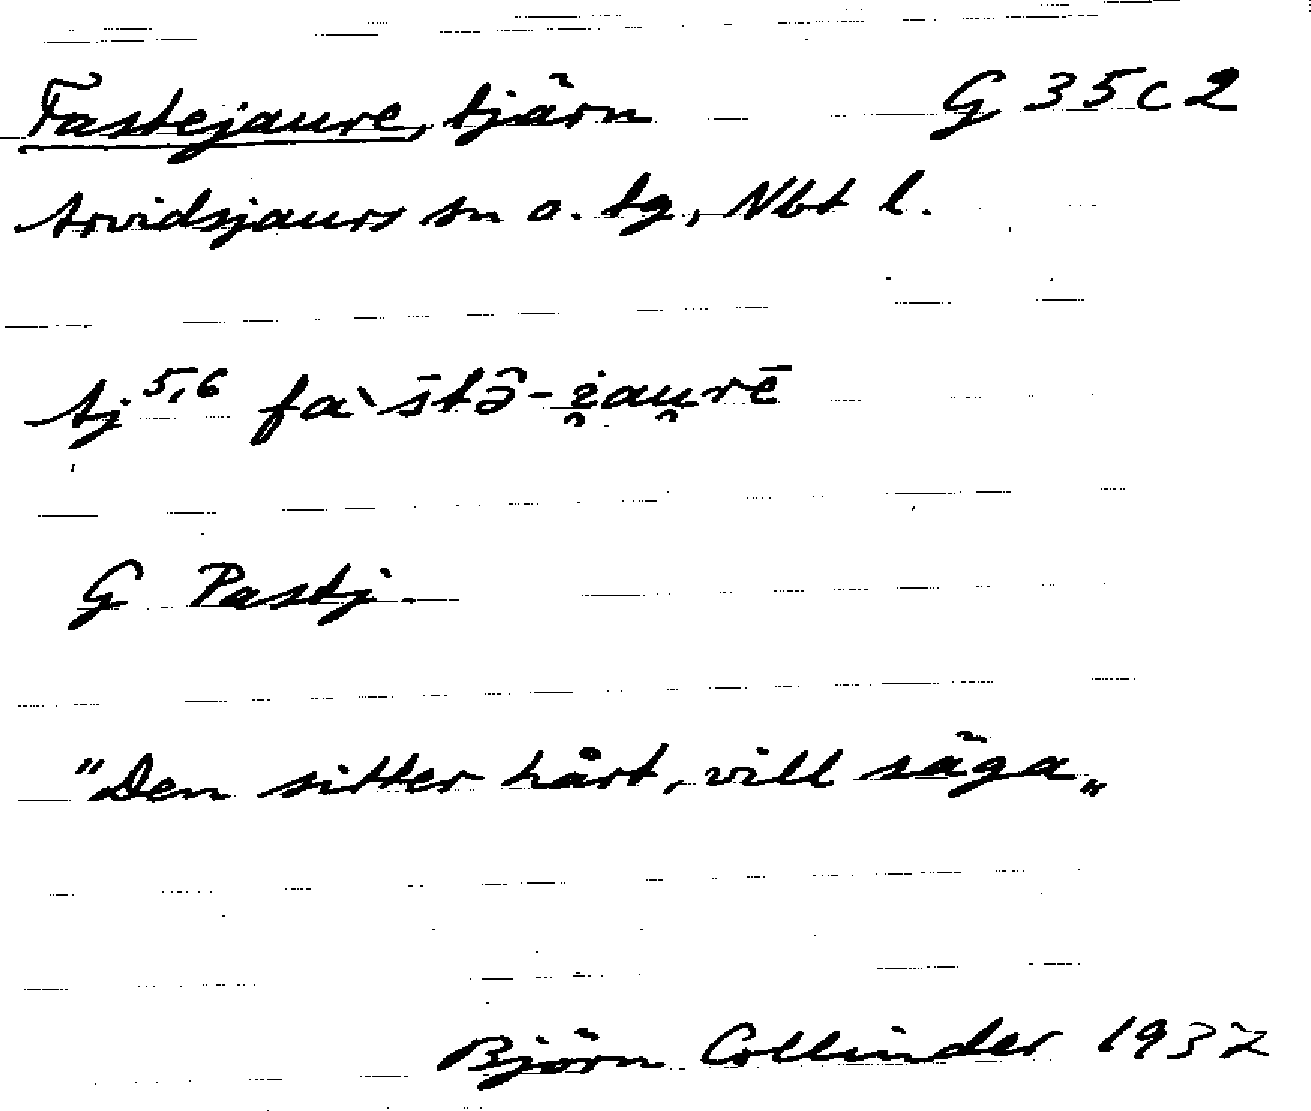 Fastejaure, tjärn G 35 c 2
Arvidsjaurs sn o. tg, Nbt l.
tj 5,6 fa`s̄tə̑-i̯au̯rē
G Pastj.
"Den sitter hårt, vill säga"
Björn Collinder 1937